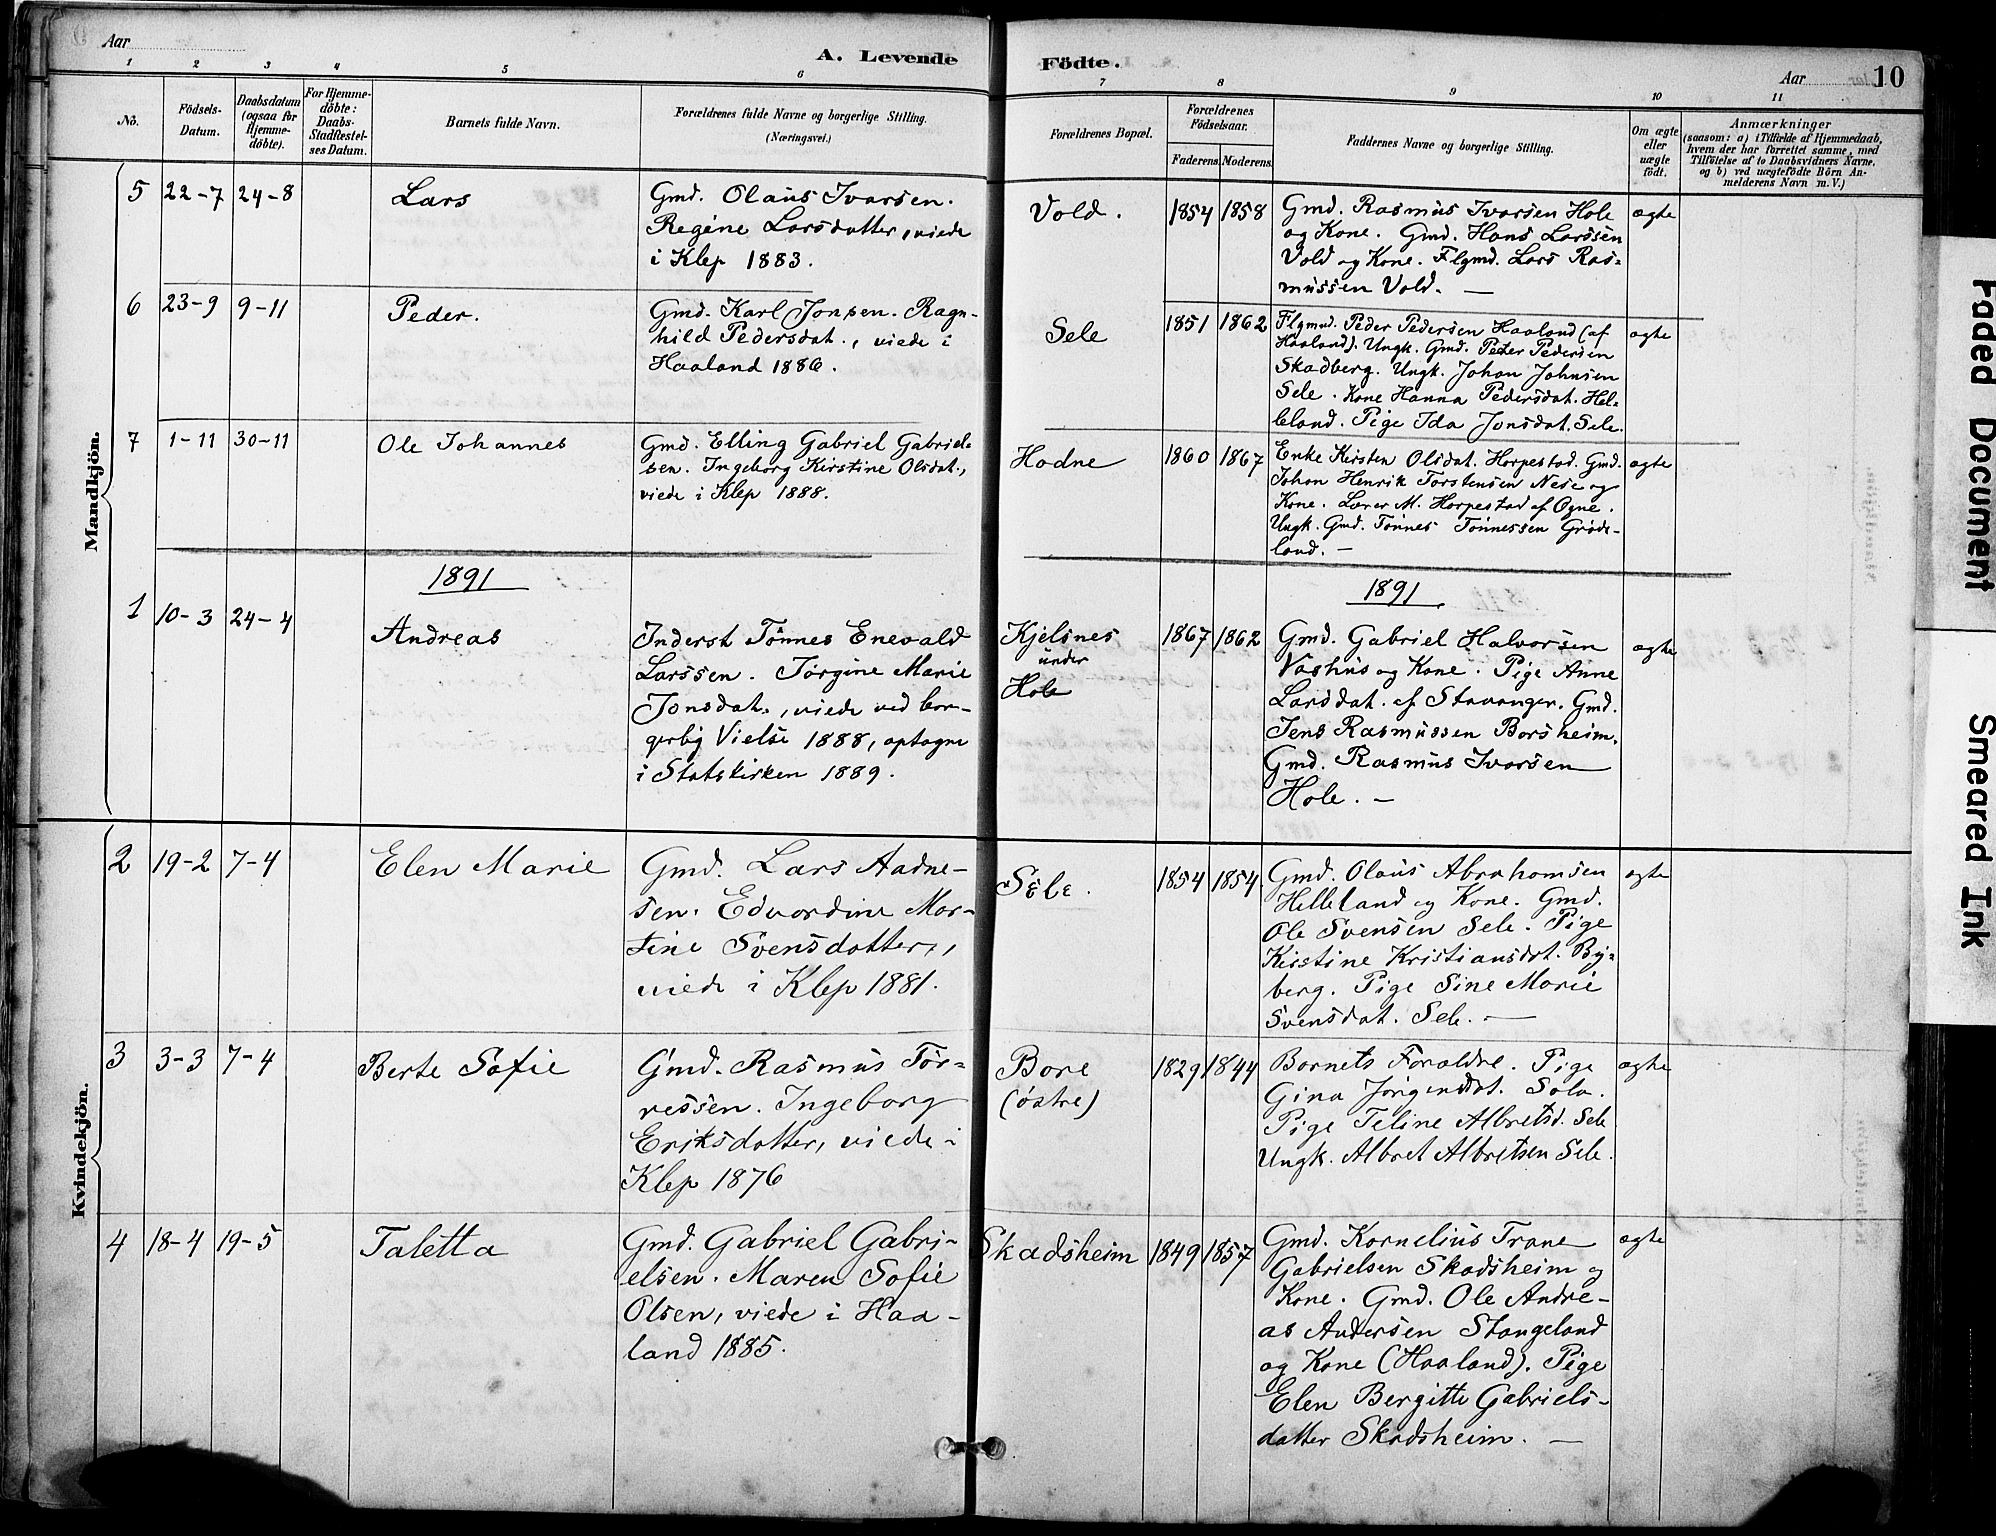 Aar
A. Levende
Födte.
Aar
10
1 2 3 4 5 6 7 8 9 10 11
No.
Födsels-
Datum.
Daabsdatum
(ogsaa for
Hjemme-
döbte).
For Hjemme-
döbte:
Daabs-
Stadfæstel-
ses Datum.
Barnets fulde Navn.
Forældrenes fulde Navne og borgerlige Stilling.
(Næringsvei.)
Forældrenes Bopæl.
Forældrenes
Födselsaar.
Faderens. Moderens.
Faddernes Navne og borgerlige Stilling.
Om ægte
eller
uægte
födt.
Anmærkninger
(saasom: a) i Tilfælde af Hjemmedaab,
hvem der har forrettet samme, med
Tilföielse af to Daabsvidners Navne.
og b) ved uægtefödte Börn An-
melderens Navn m. V.)
Mandkjön.
5 22-7 24-8 Lars
Gmd. Olaus Ivarsen.
Regine Larsdatter, viede
i Klep 1883.
Vold. 1854 1858
Gmd. Rasmus Ivarsen Hole
og Kone. Gmd. Hans Larssen
Vold og Kone. Flgmd. Lars Ras-
mussen Vold. —
ægte
6 23-9 9-11 Peder.
Gmd. Karl Jonsen. Ragn-
hild Pedersdat., viede i
Haaland 1886.
Sele 1851 1862
Flgmd. Peder Pedersen Haaland (af
Haaland). Ungk. Gmd. Peder Pedersen
Skadberg. Ungk. Johan Johnsen
Sele. Kone Hanna Pedersdat. Hel-
leland. Pige Ida Jonsdat. Sele.
ægte
7 1-11 30-11 Ole Johannes
Gmd. Elling Gabriel Gabriel-
sen. Ingeborg Kirstine Olsdat.,
viede i Klep 1888.
Hodne 1860 1867
Enke Kirsten Olsdat. Horpestad. Gmd.
Johan Henrik Torstensen Nese og
Kone. Lærer M. Horpestad af Ogne.
Ungk. Gmd. Tönnes Tönnessen Gröde-
land. —
ægte
1891
1891
1 10-3 24-4 Andreas
Inderst Tönnes Enevald
Larssen. Jörgine Marie
Jonsdat., viede ved bor-
gerlig Vielse 1888, optagne
i Statskirken 1889.
Kjelsnes
under
Hole
1867 1862
Gmd. Gabriel Halvorsen
Vashus og Kone. Pige Anne
Larsdat. af Stavanger. Gmd.
Jens Rasmussen Borsheim.
Gmd. Rasmus Ivarsen
Hole. —
ægte
Kvindekjön.
2 19-2 7-4 Elen Marie
Gmd. Lars Aadne-
sen. Edvardine Mar-
tine Svensdatter,
viede i Klep 1881.
Sele. 1854 1854
Gmd. Olaus Abrahamsen
Helleland og Kone. Gmd.
Ole Svensen Sele. Pige
Kirstine Kristiansdat. By-
berg. Pige Sine Marie
Svensdat. Sele. —
ægte
3 3-3 7-4 Berte Sofie
Gmd. Rasmus Tor-
ressen. Ingeborg
Eriksdatter, viede i
Klep 1876
Bore
(östre)
1829 1844
Barnets Foraldre. Pige
Gina Jörgensdat. Sola.
Pige Teline Albretsd. Sele
Ungk. Albret Albretsen Sele.
ægte
4 18-4 19-5 Taletta
Gmd. Gabriel Gabri-
elsen. Maren Sofie
Olsen, viede i Haa-
land 1885.
Skadsheim 1849 1857
Gmd. Kornelius Trane
Gabrielsen Skadsheim og
Kone. Gmd. Ole Andre-
as Andersen Stangeland
og Kone (Haaland). Pige
Elen Bergitte Gabriels-
datter Skadsheim. —
ægte
Faded Document
Smeared Ink